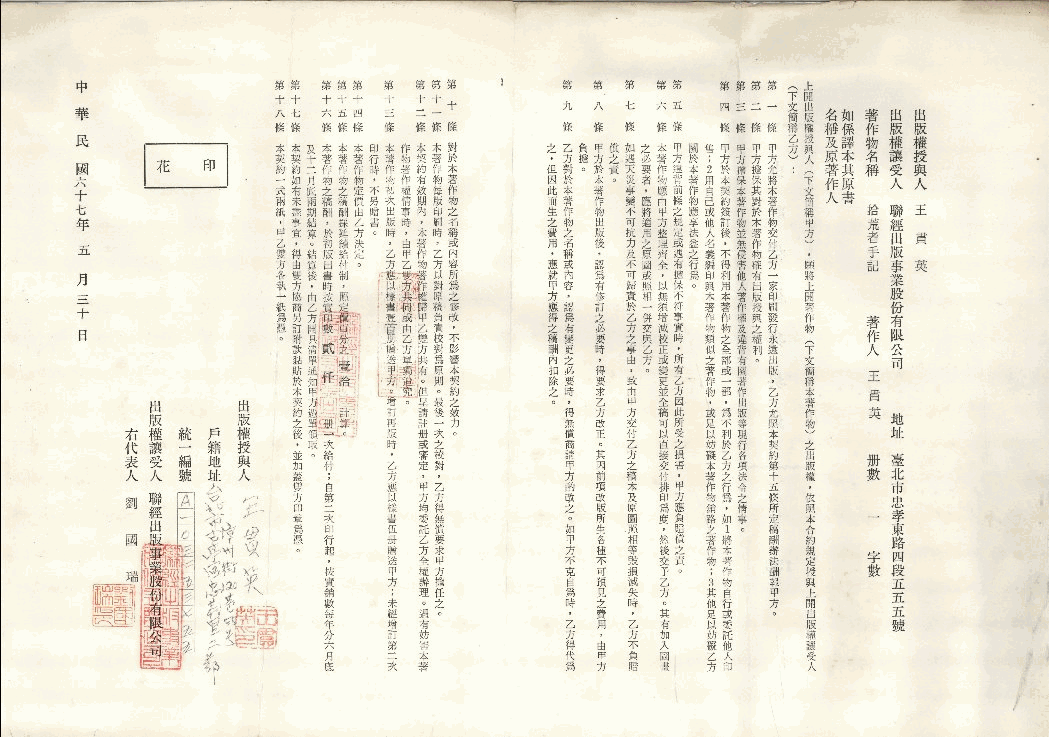 出版權授與人　王貫英
出版權讓受人　聯經出版事業股份有限公司　地址　臺北市忠孝東路四段五五五號
著作物名稱　拾荒者手記　著作人　王貫英　册數　一　字數
如係譯本其原書
名稱及原著作人
上開出版權授與人（下文簡稱甲方），願將上開著作物（下文簡稱本著作物）之出版權，依照本合約規定授與上開出版權讓受人
（下文簡稱乙方）：
第一條　甲方允將本著作物交付乙方一家印刷發行永遠出版，乙方允照本契約第十五條所定稿酬辦法酬報甲方。
第二條　甲方擔保其對於本著作物確有出版授與之權利。
第三條　甲方擔保本著作物並無侵害他人著作權及違背有關著作出版等現行各項法令之情事。
第四條　甲方於本契約簽訂後，不得利用本著作物之全部或一部，為不利於乙方之行為，如1將本著作物自行或委託他人印
售；2用自己或他人名義編印與本著作物類似之著作物，或足以妨礙本著作物銷路之著作物；3其他足以妨礙乙方
關於本著作物應享法益之行為。
第五條　甲方違背前條之規定或遇有擔保不符事實時，所有乙方因此所受之損害，甲方應負賠償之責。
第六條　本著作物應由甲方整理齊全，以無須增減校正或變更並全稿可以直接交付排印為度，然後交予乙方。其有加入圖畫
之必要者，應將適用之原圖或照相一併交與乙方。
第七條　如遇天災事變不可抗力及不可歸責於乙方之事由，致由甲方交付乙方之稿本及原圖照相等毀損滅失時，乙方不負賠
償之責。
第八條　甲方於本著作物出版後，認為有修訂之必要時，得要求乙方改正。其因前項改版所生各種不可預見之費用，由甲方
負擔。
第九條　乙方對於本著作物之名稱或內容，認為有變更之必要時，得無償商請甲方酌改之。如甲方不克自為時，乙方得代為
之，但因此而生之費用，應就甲方應得之稿酬內扣除之。
第十條　對於本著作物之名稱或內容所為之修改，不影響本契約之效力。
第十一條　本著作物每版印刷時，乙方以對原稿負責校對為原則。最後一次之校對，乙方得無償要求甲方擔任之。
第十二條　本契約有效期內，本著作物著作權歸甲乙雙方共有。但呈請註册或審定，甲方均委託乙方全權辦理。遇有妨害本著
作物著作權情事時，由甲乙雙方共同或由乙方單獨追究。
第十三條　本著作物初次出版時，乙方應以樣書壹百册贈送甲方。增訂再版時，乙方應以樣書伍册贈送甲方；未經增訂第二次
印行時，不另贈書。
第十四條　本著作物定價由乙方決定。
第十五條　本著作物之稿酬採延續給付制，照定價百分之壹拾計算。
第十六條　本著作物之稿酬，於初版出書時按實印數貳仟册一次給付；自第二次印行起，按實銷數每年分六月底
及十二月底兩期結算。結算後，由乙方開具清單通知甲方簽單領取。
第十七條　本契約如有未盡事宜，得由雙方協商另訂附款黏貼於本契約之後，並加蓋雙方印章為憑。
第十八條　本契約一式兩紙，甲乙雙方各執一紙為憑。
出版權授與人　王貫英
戶籍地址
統一編號
出版權讓受人　聯經出版事業股份有限公司
右代表人　劉國瑞
印花
中華民國六十七年五月三十日